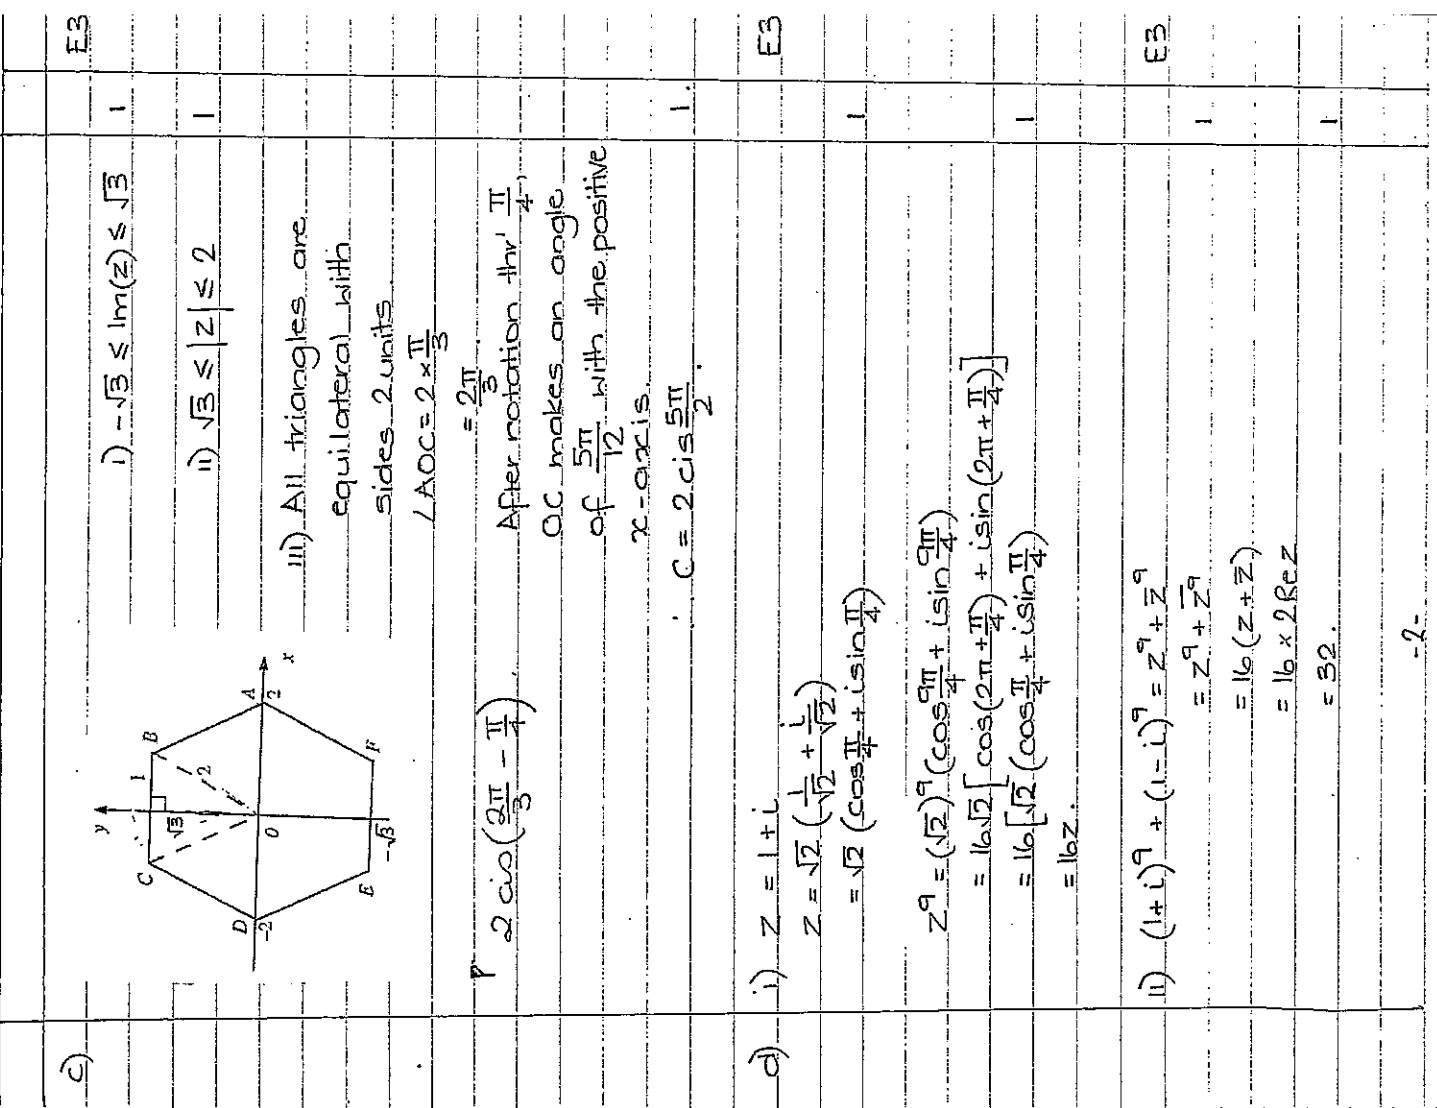 c)
E3
y
C
1
B
√3
2
D
-2
O
A
2
x
E
-√3
F
i) -√3 ≤ Im(z) ≤ √3 1
ii) √3 ≤ |z| ≤ 2 1
iii) All triangles are
equilateral with
sides 2 units.
∠AOC = 2 × π/3
= 2π/3
2 cis(2π/3 - π/4).
After rotation thr' π/4,
OC makes an angle
of 5π/12 with the positive
x-axis.
C = 2 cis 5π/2. 1.
d) i) z = 1+i E3
z = √2 (1/√2 + i/√2)
= √2 (cos π/4 + i sin π/4) 1
z⁹ = (√2)⁹ (cos 9π/4 + i sin 9π/4)
= 16√2 [cos(2π + π/4) + i sin(2π + π/4)]
= 16[√2 (cos π/4 + i sin π/4) 1
= 16z.
ii) (1+i)⁹ + (1-i)⁹ = z⁹ + z̄⁹ E3
= z⁹ + z̄⁹ 1
= 16(z + z̄)
= 16 × 2 Re z
= 32. 1
-2-